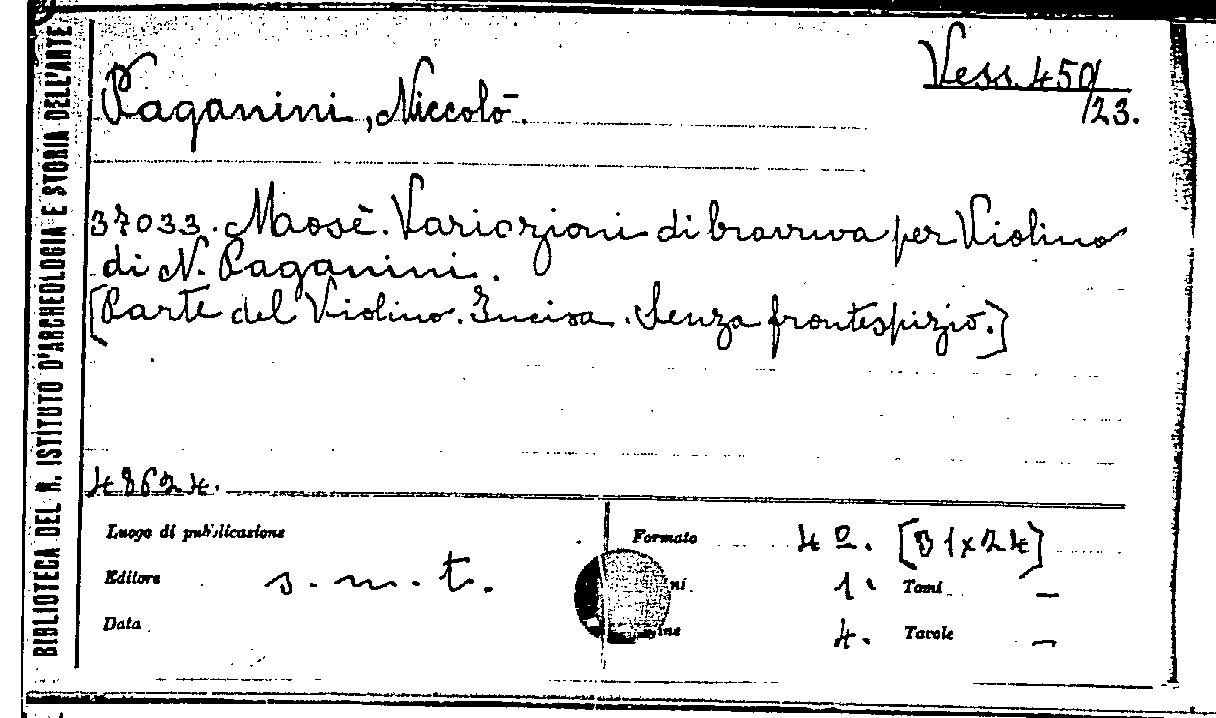 BIBLIOTECA DEL R. ISTITUTO D'ARCHEOLOGIA E STORIA DELL'ARTE
Vess. 450/23.
Paganini, Niccolò.
37033. Mosè. Variazioni di bravura per Violino
di N. Paganini.
[Parte del Violino. Incisa. Senza frontespizio.]
48624.
Luogo di pubblicazione
Editore s. n. t.
Data
Formato 4º. [31x24]
1. Tomi —
4. Tavole —